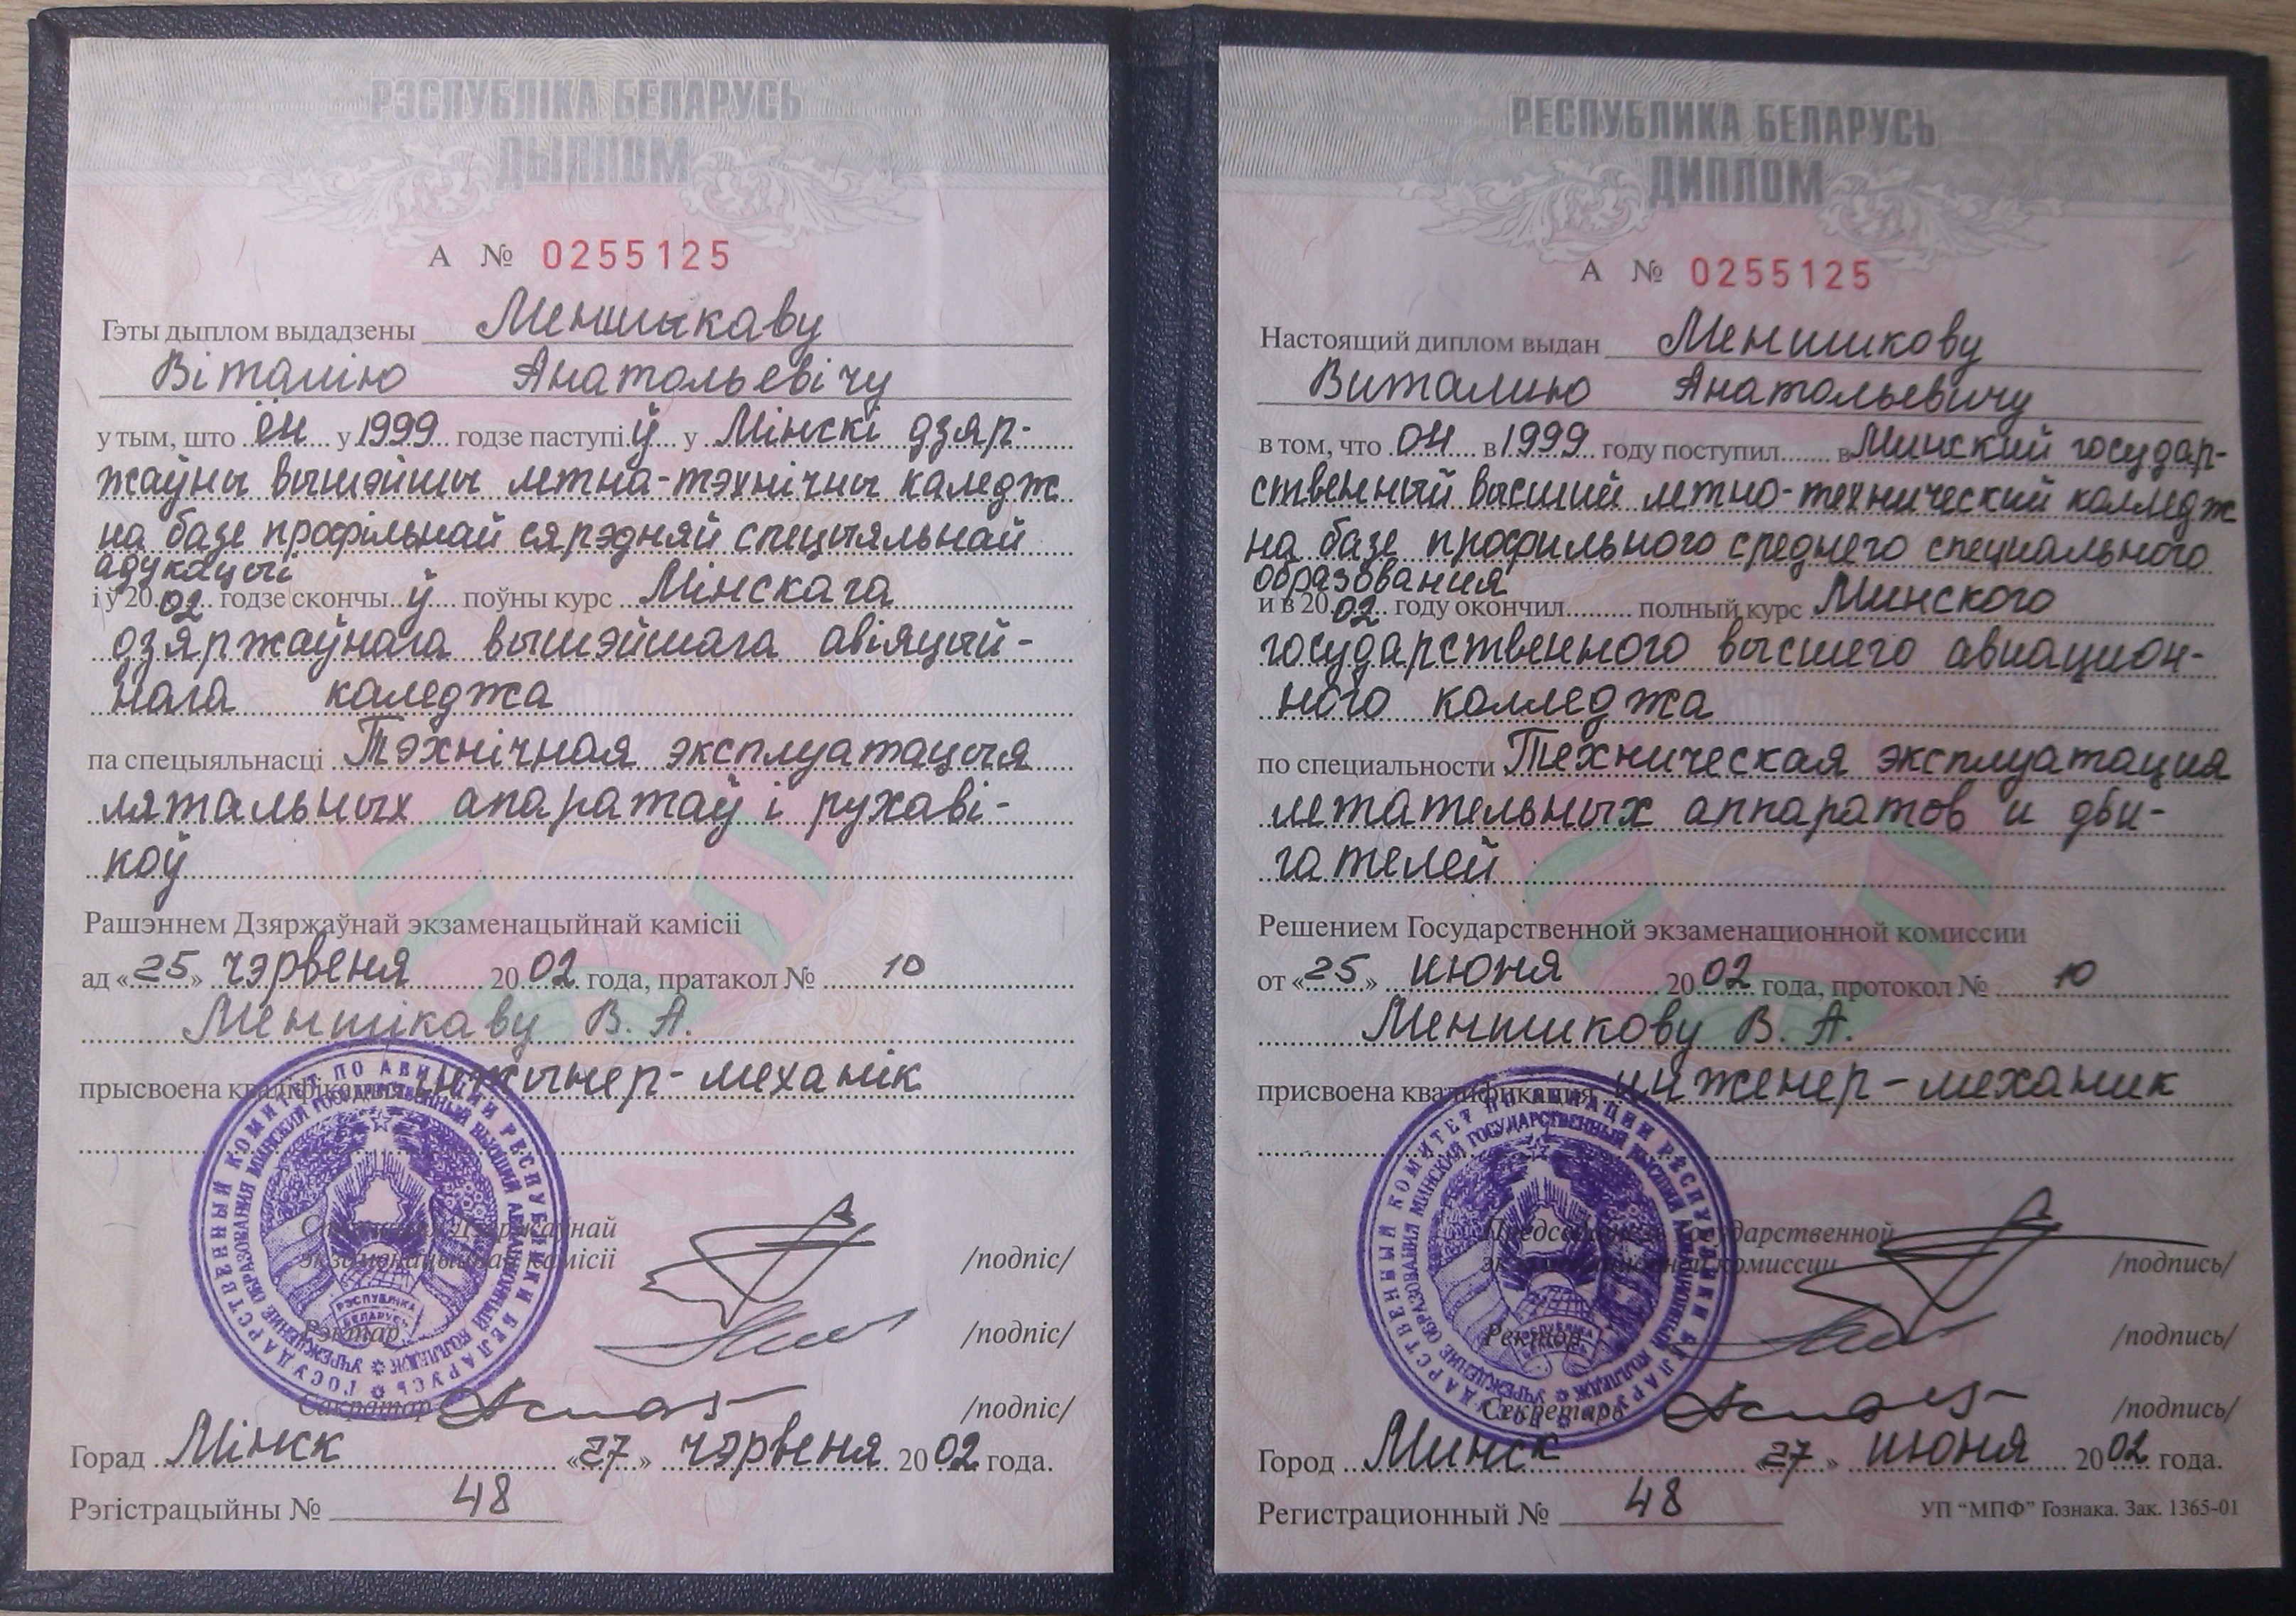 РЭСПУБЛІКА БЕЛАРУСЬ
ДЫПЛОМ
А № 0255125
Гэты дыплом выдадзены Меншыкаву
Віталію Анатольевічу
у тым, што ён у 1999 годзе паступіў у Мінскі дзяр-
жаўны вышэйшы летна-тэхнічны каледж
на базе профільнай сярэдняй спецыяльнай
адукацыі
і ў 2002 годзе скончыў поўны курс Мінскага
дзяржаўнага вышэйшага авіяцый-
нага каледжа
па спецыяльнасці Тэхнічная эксплуатацыя
лятальных апаратаў і рухаві-
коў
Рашэннем Дзяржаўнай экзаменацыйнай камісіі
ад «25» чэрвеня 2002 года, пратакол № 10
Меншікаву В. А.
прысвоена кваліфікацыя інжынер-механік
Старшыня Дзяржаўнай
экзаменацыйнай камісіі /подпіс/
Рэктар /подпіс/
Сакратар /подпіс/
Горад Мінск «27» чэрвеня 2002 года.
Рэгістрацыйны № 48
ГОСУДАРСТВЕННЫЙ КОМИТЕТ ПО АВИАЦИИ РЕСПУБЛИКИ БЕЛАРУСЬ
УЧРЕЖДЕНИЕ ОБРАЗОВАНИЯ МИНСКИЙ ГОСУДАРСТВЕННЫЙ ВЫСШИЙ АВИАЦИОННЫЙ КОЛЛЕДЖ
РЭСПУБЛІКА
БЕЛАРУСЬ
РЕСПУБЛИКА БЕЛАРУСЬ
ДИПЛОМ
А № 0255125
Настоящий диплом выдан Меншикову
Виталию Анатольевичу
в том, что он в 1999 году поступил в Минский государ-
ственный высший летно-технический колледж
на базе профильного среднего специального
образования
и в 2002 году окончил полный курс Минского
государственного высшего авиацион-
ного колледжа
по специальности Техническая эксплуатация
летательных аппаратов и дви-
гателей
Решением Государственной экзаменационной комиссии
от «25» июня 2002 года, протокол № 10
Меншикову В. А.
присвоена квалификация инженер-механик
Председатель Государственной
экзаменационной комиссии /подпись/
Ректор /подпись/
Секретарь /подпись/
Город Минск «27» июня 2002 года.
Регистрационный № 48
УП “МПФ” Гознака. Зак. 1365-01
ГОСУДАРСТВЕННЫЙ КОМИТЕТ ПО АВИАЦИИ РЕСПУБЛИКИ БЕЛАРУСЬ
УЧРЕЖДЕНИЕ ОБРАЗОВАНИЯ МИНСКИЙ ГОСУДАРСТВЕННЫЙ ВЫСШИЙ АВИАЦИОННЫЙ КОЛЛЕДЖ
РЭСПУБЛІКА
БЕЛАРУСЬ